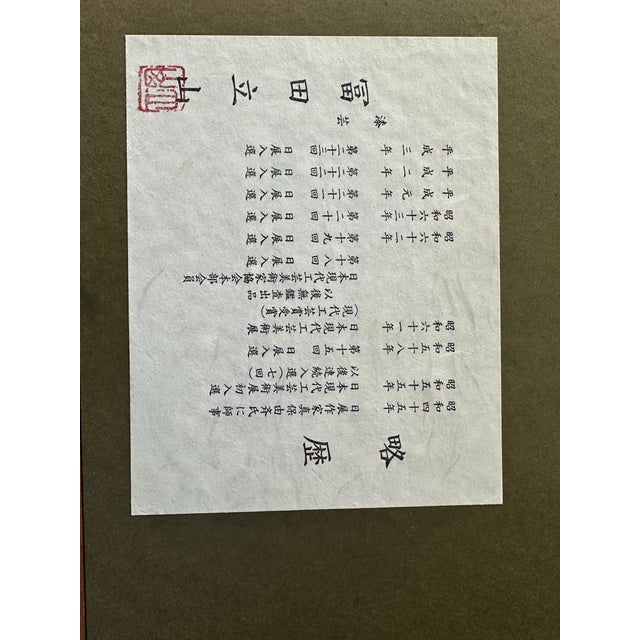 略歴
昭和四十五年 日展作家真保由斉氏に師事
昭和五十五年 日本現代工芸美術展初入選
以後連続入選(七回)
昭和五十八年 第十五回 日展入選
昭和六十一年 日本現代工芸美術展
(現代工芸賞受賞)
以後無鑑査出品
日本現代工芸美術家協会本部会員
第十八回 日展入選
昭和六十二年 第十九回 日展入選
昭和六十三年 第二十回 日展入選
平成元年 第二十一回 日展入選
平成二年 第二十二回 日展入選
平成三年 第二十三回 日展入選
漆芸
富田立山